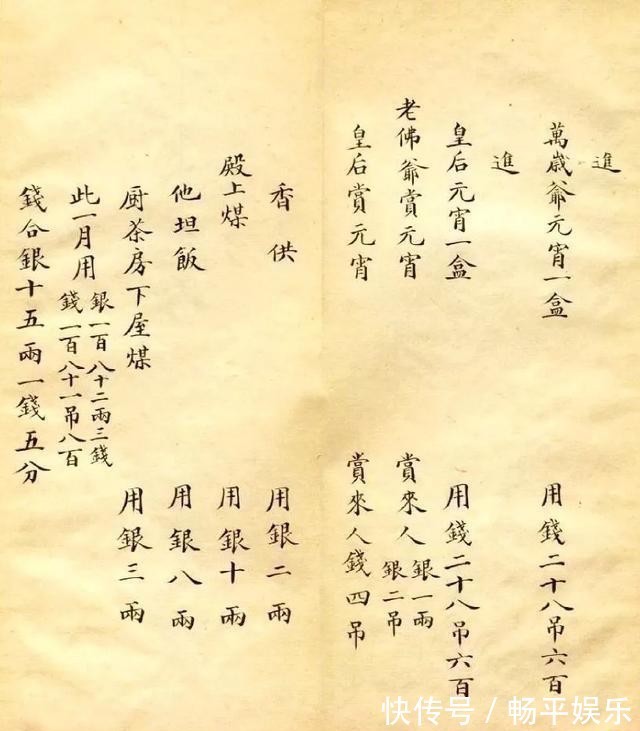 進
萬歲爺元宵一盒 用錢二十八吊六百
進
皇后元宵一盒 用錢二十八吊六百
老佛爺賞元宵 賞來人銀一兩銀二吊
皇后賞元宵 賞來人錢四吊
香供 用銀二兩
殿上煤 用銀十兩
他坦飯 用銀八兩
厨茶房下屋煤 用銀三兩
此一月用銀一百八十二兩三錢錢一百八十一吊八百
錢合銀十五兩一錢五分
快传号/畅平娱乐